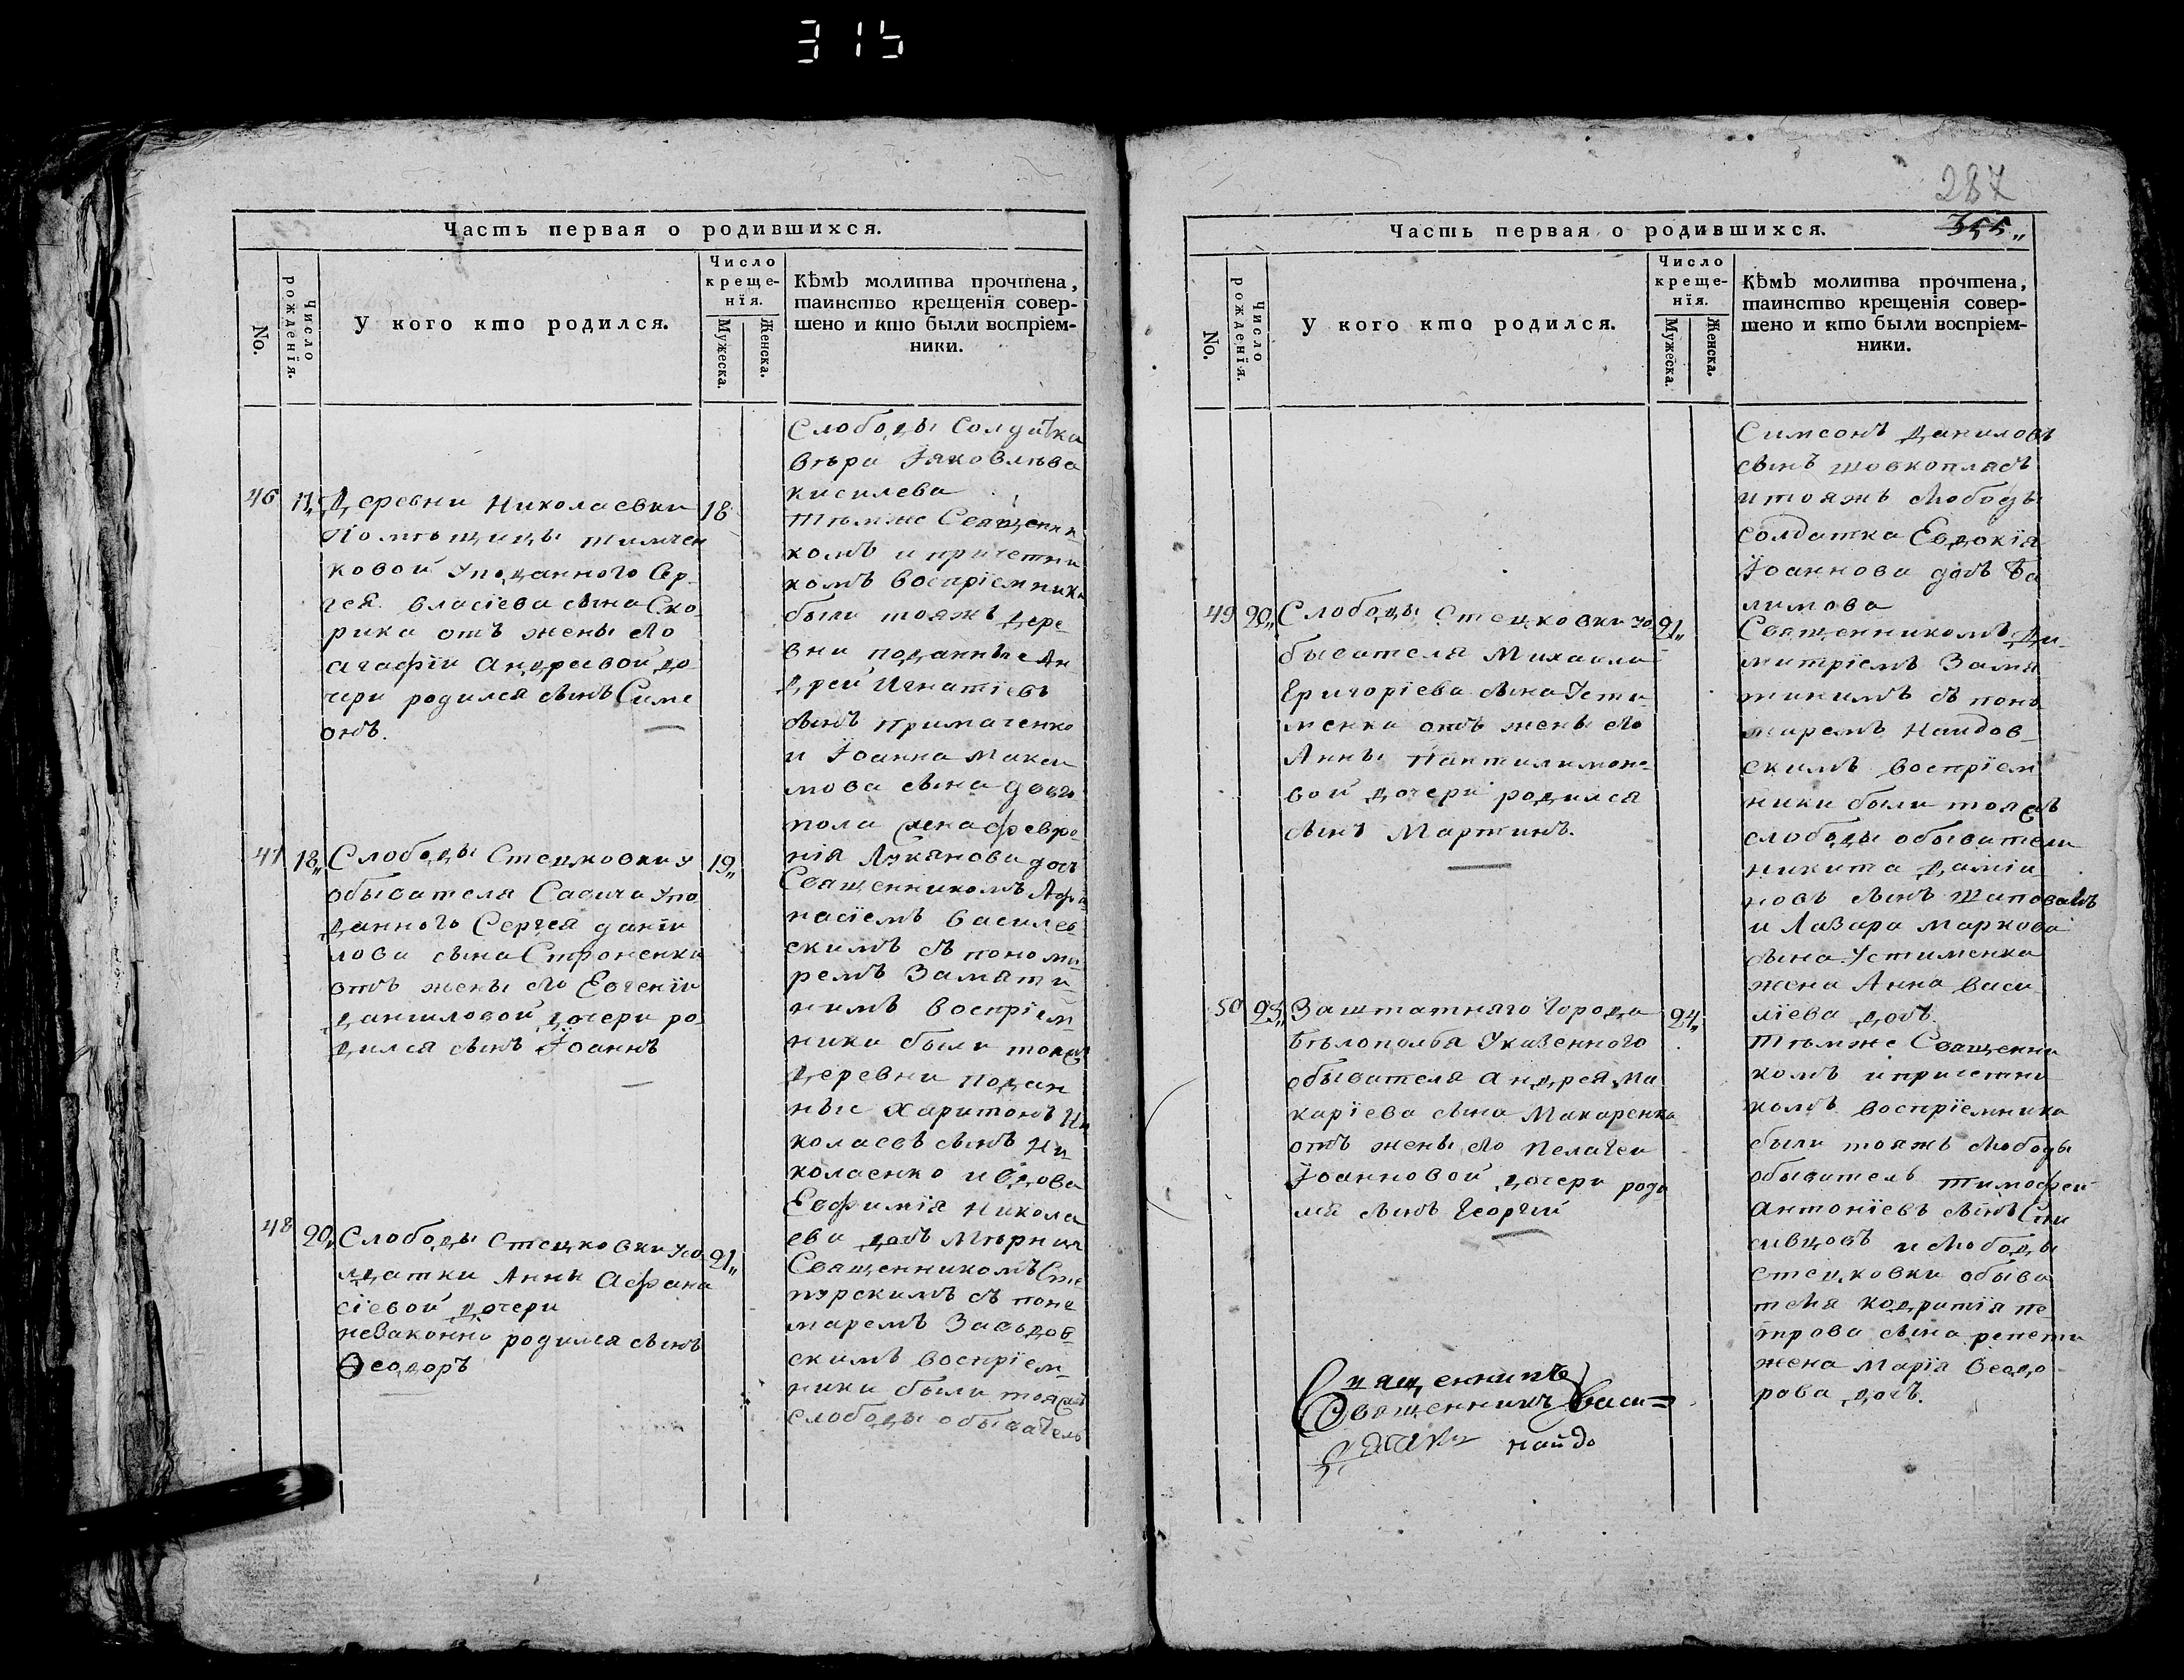 315
Часть первая о родившихся.
No.
Число рожденїя.
У кого кто родился.
Число
креще-
нїя.
Мужеска.
Женска.
Кѣмъ молитва прочтена,
таинство крещенїя совер-
шено и кто были воспрїем-
ники.
слободы солдатка
вѣра Їяковлѣва
кисилева
46
17„
Деревни Николаевки
Помѣщицы тимчен
ковой уподанного Сер-
гея власїева сына Ско
рика отъ жены его
агафїи андреевой до
чери родился сынъ Симе
онъ.
18
тѣмже Священни
комъ и причетни
комъ воспрїемники
были тояжъ дере-
вни поданные Ан
дрей Игнатїевъ
сынъ Примаченко
и Їоанна макси
мова сына довго
пола жена февро
нїя Лукянова дочь
47
18„
Слободы Стецковки у
обывателя Савича упо
данного Сергея данїи
лова сына Строненка
отъ жены его Евгенїи
даниловой дочери ро
дился сынъ Їоаннъ
19„
Священникомъ Афа
насїемъ василев
скимъ съ понома
ремъ Замяти
нимъ воспрїем
ники были тояжъ
деревни подан
ные харитонъ Ни
колаевъ сынъ Ни
колаенко и вдова
Евфимїя никола
ева дочь Мѣрнич
48
20„
Слободы Стецковки усо
лдатки Анны Афана
сїевой дочери
незаконно родился сынъ
Ѳеодоръ
21„
Священникомъ Сте
пурскимъ съ поно
маремъ Заводов
скимъ воспрїем
ники были тояжъ
слободы обыватель
287
355„
Часть первая о родившихся.
No.
Число рожденїя.
У кого кто родился.
Число
креще-
нїя.
Мужеска.
Женска.
Кѣмъ молитва прочтена,
таинство крещенїя совер-
шено и кто были воспрїем-
ники.
Симеонъ даниловъ
сынъ шовкоплясъ
и тояжъ слободы
солдатка Евдокїя
Їоаннова дочь Ва
лимова
49
20„
Слободы Стецковки уо
бывателя Михаила
Григорїева сына Усти-
менка отъ жены его
Анны Пантилимоно-
вой дочери родился
сынъ Мартинъ.
21„
Священникомъ Ди-
митрїемъ Замя
тинимъ съ поно
маремъ Найдов-
скимъ воспрїем
ники были тояжъ
слободы обыватели
никита дамїа-
новъ сынъ Шаповалъ
и Лазара маркова
сына Устименка
жена Анна васи
лїева дочь.
50
23„
Заштатняго города
бѣлополья Указенного
обывателя андрея Ма
карїева сына Макаренка
отъ жены его Пелагеи
Їоанновой дочери роди
лся сынъ Георгїй
24„
Тѣмже Священни
комъ и причетни
комъ воспрїемники
были тояжъ слободы
обыватель тимофей
антонїевъ сынъ
и слободы
стецковки обыва
теля кодратїя пе
трова сына репети
жена марїя Ѳеодо
рова дочь.
Священникъ
Священникъ Васи=
найдо